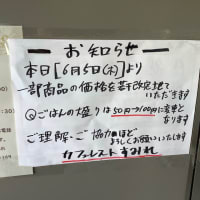 お知らせ
本日[6月5日(木)]より
一部商品の価格を若干改定させて
いただきます
◎ごはんの盛りは50円→100円に変更と
なります
ご理解・ご協力のほど
よろしくお願いいたします
カフェレストすみれ